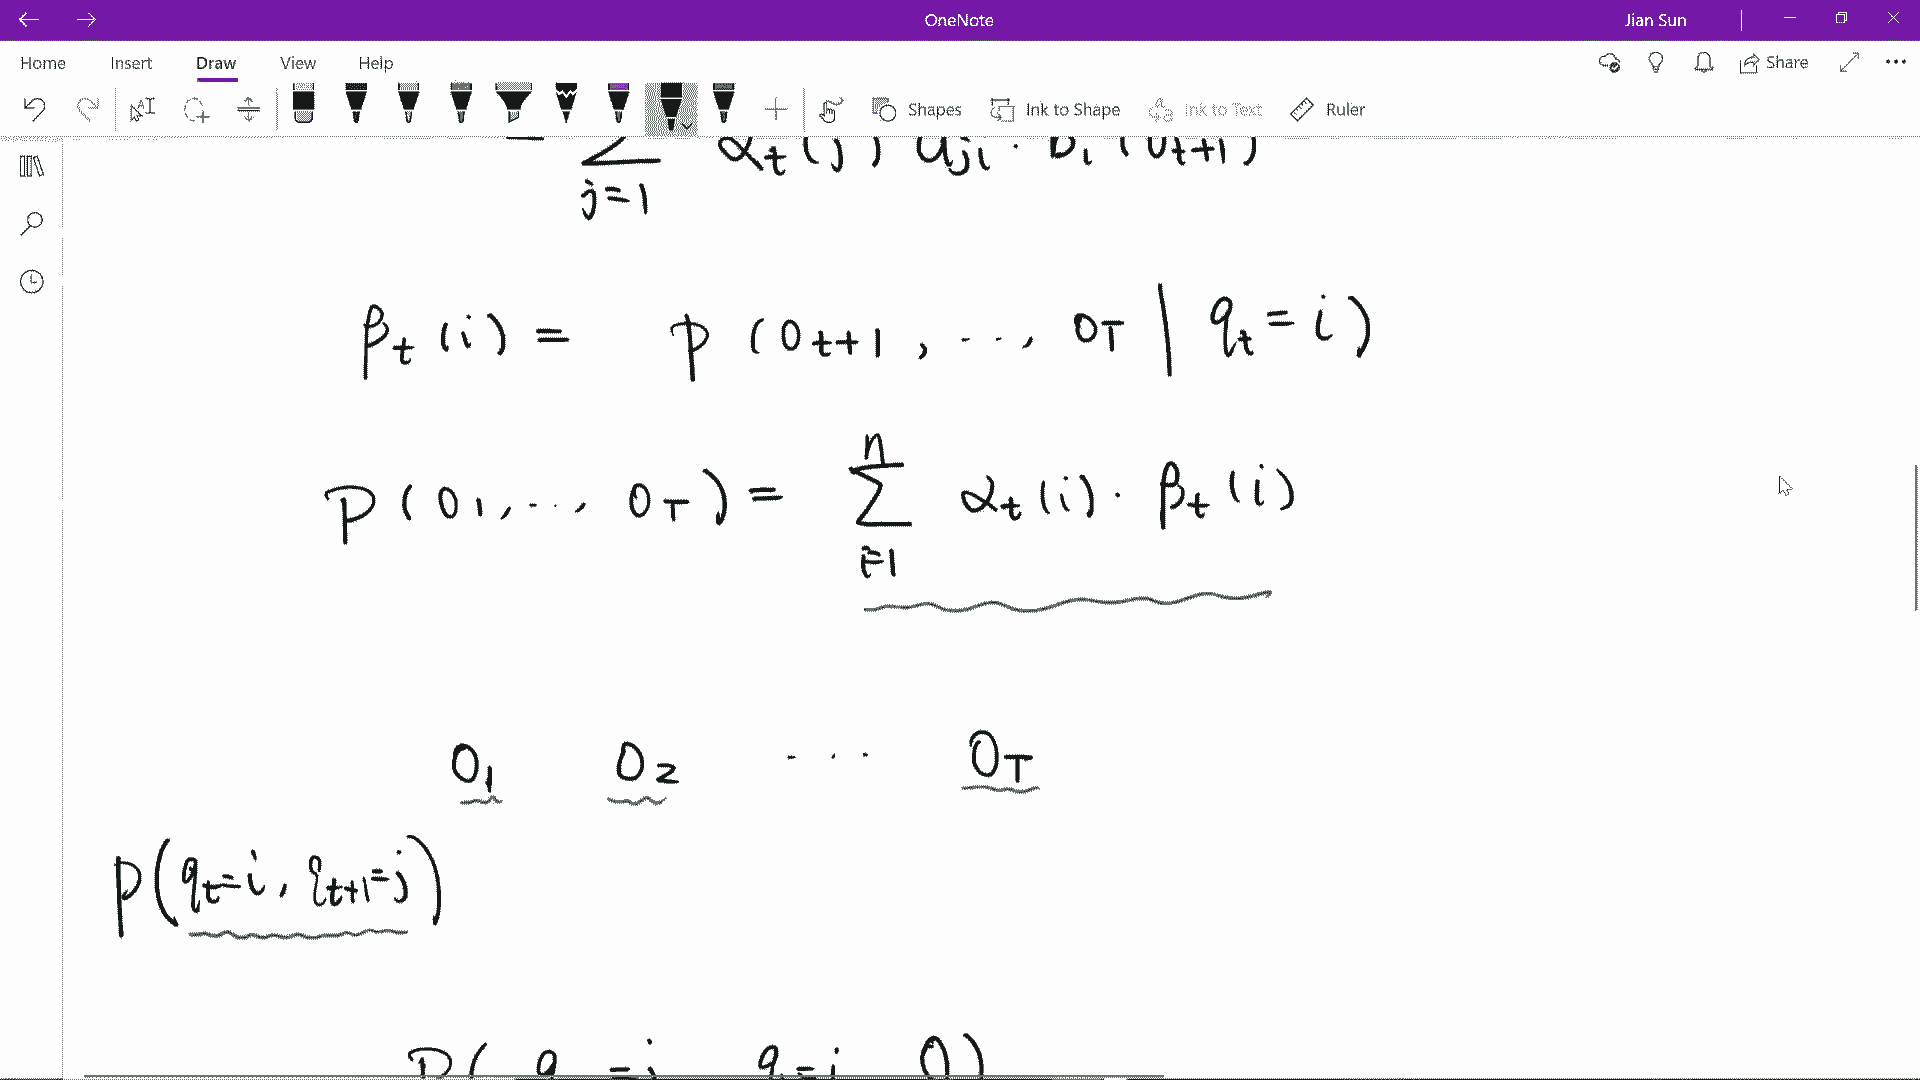 OneNote
Jian Sun
Home Insert Draw View Help
Share
Shapes Ink to Shape Ink to Text Ruler
= ∑_{j=1} α_t(j) a_{ji} · b_i(O_{t+1})
β_t(i) = P(O_{t+1}, ..., O_T | q_t = i)
P(O_1, ..., O_T) = ∑_{i=1}^{n} α_t(i) · β_t(i)
O_1 O_2 ... O_T
P(q_t=i, q_{t+1}=j)